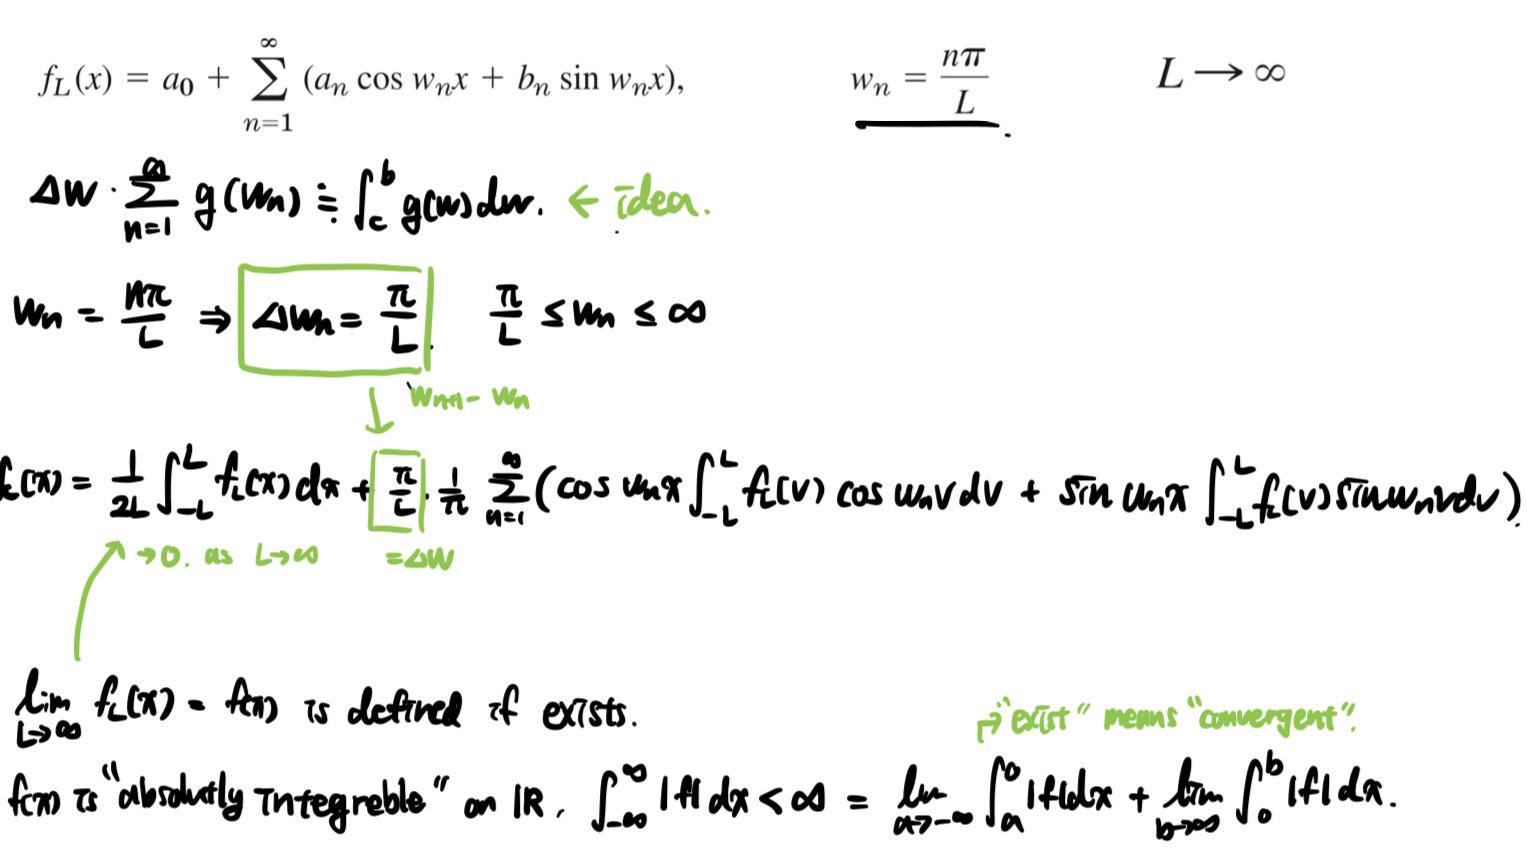 f_L(x) = a_0 + ∑_{n=1}^{∞} (a_n cos w_n x + b_n sin w_n x), w_n = nπ/L . L → ∞
Δw · ∑_{n=1}^{∞} g(w_n) ≒ ∫_c^b g(w) dw. ← idea.
w_n = nπ/L ⇒ Δw_n = π/L . π/L ≤ w_n ≤ ∞
w_{n+1} - w_n
f_L(x) = 1/2L ∫_{-L}^{L} f_L(x) dx + π/L · 1/π ∑_{n=1}^{∞} (cos w_n x ∫_{-L}^{L} f_L(v) cos w_n v dv + sin w_n x ∫_{-L}^{L} f_L(v) sin w_n v dv).
→ 0. as L→∞ = Δw
lim_{L→∞} f_L(x) = f(x) is defined if exists.
"exist" means "convergent".
f(x) is "absolutly integreble" on IR, ∫_{-∞}^{∞} |f| dx < ∞ = lim_{a→-∞} ∫_a^0 |f| dx + lim_{b→∞} ∫_0^b |f| dx.